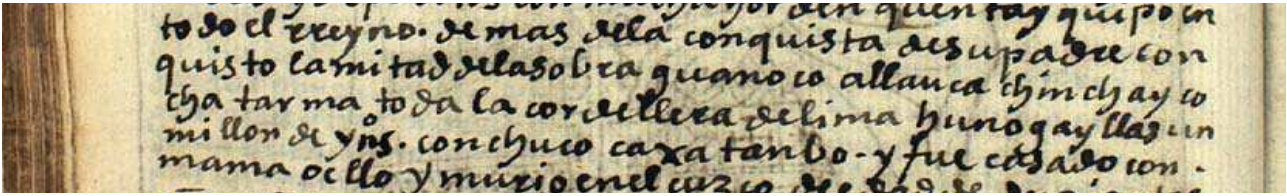 con mucha horden quenta y quipo en
todo el rreyno. de mas dela conquista de su padre con
quisto la mitad de la sobra guanoco allauca chinchay co
cha tarma toda la cordellera de lima huno gayllas un
millon de yn̊s. conchuco caxatanbo. y fue casado con.
mama ocllo y murio en el cuzco de edad de